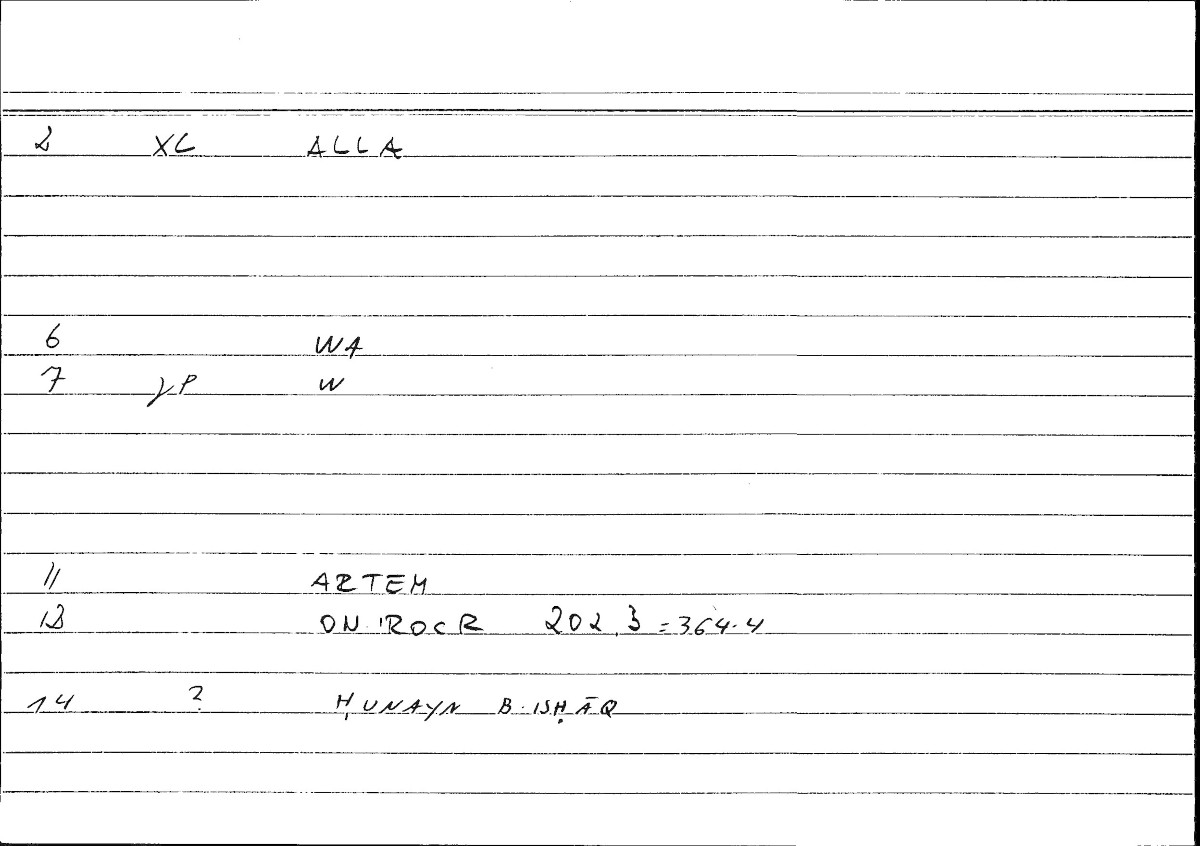 2 XL ALLA
6 WA
7 γP W
11 ARTEM
12 ONIROCR 202,3 = 364.4
14 ? ḤUNAYN B. ISḤĀQ